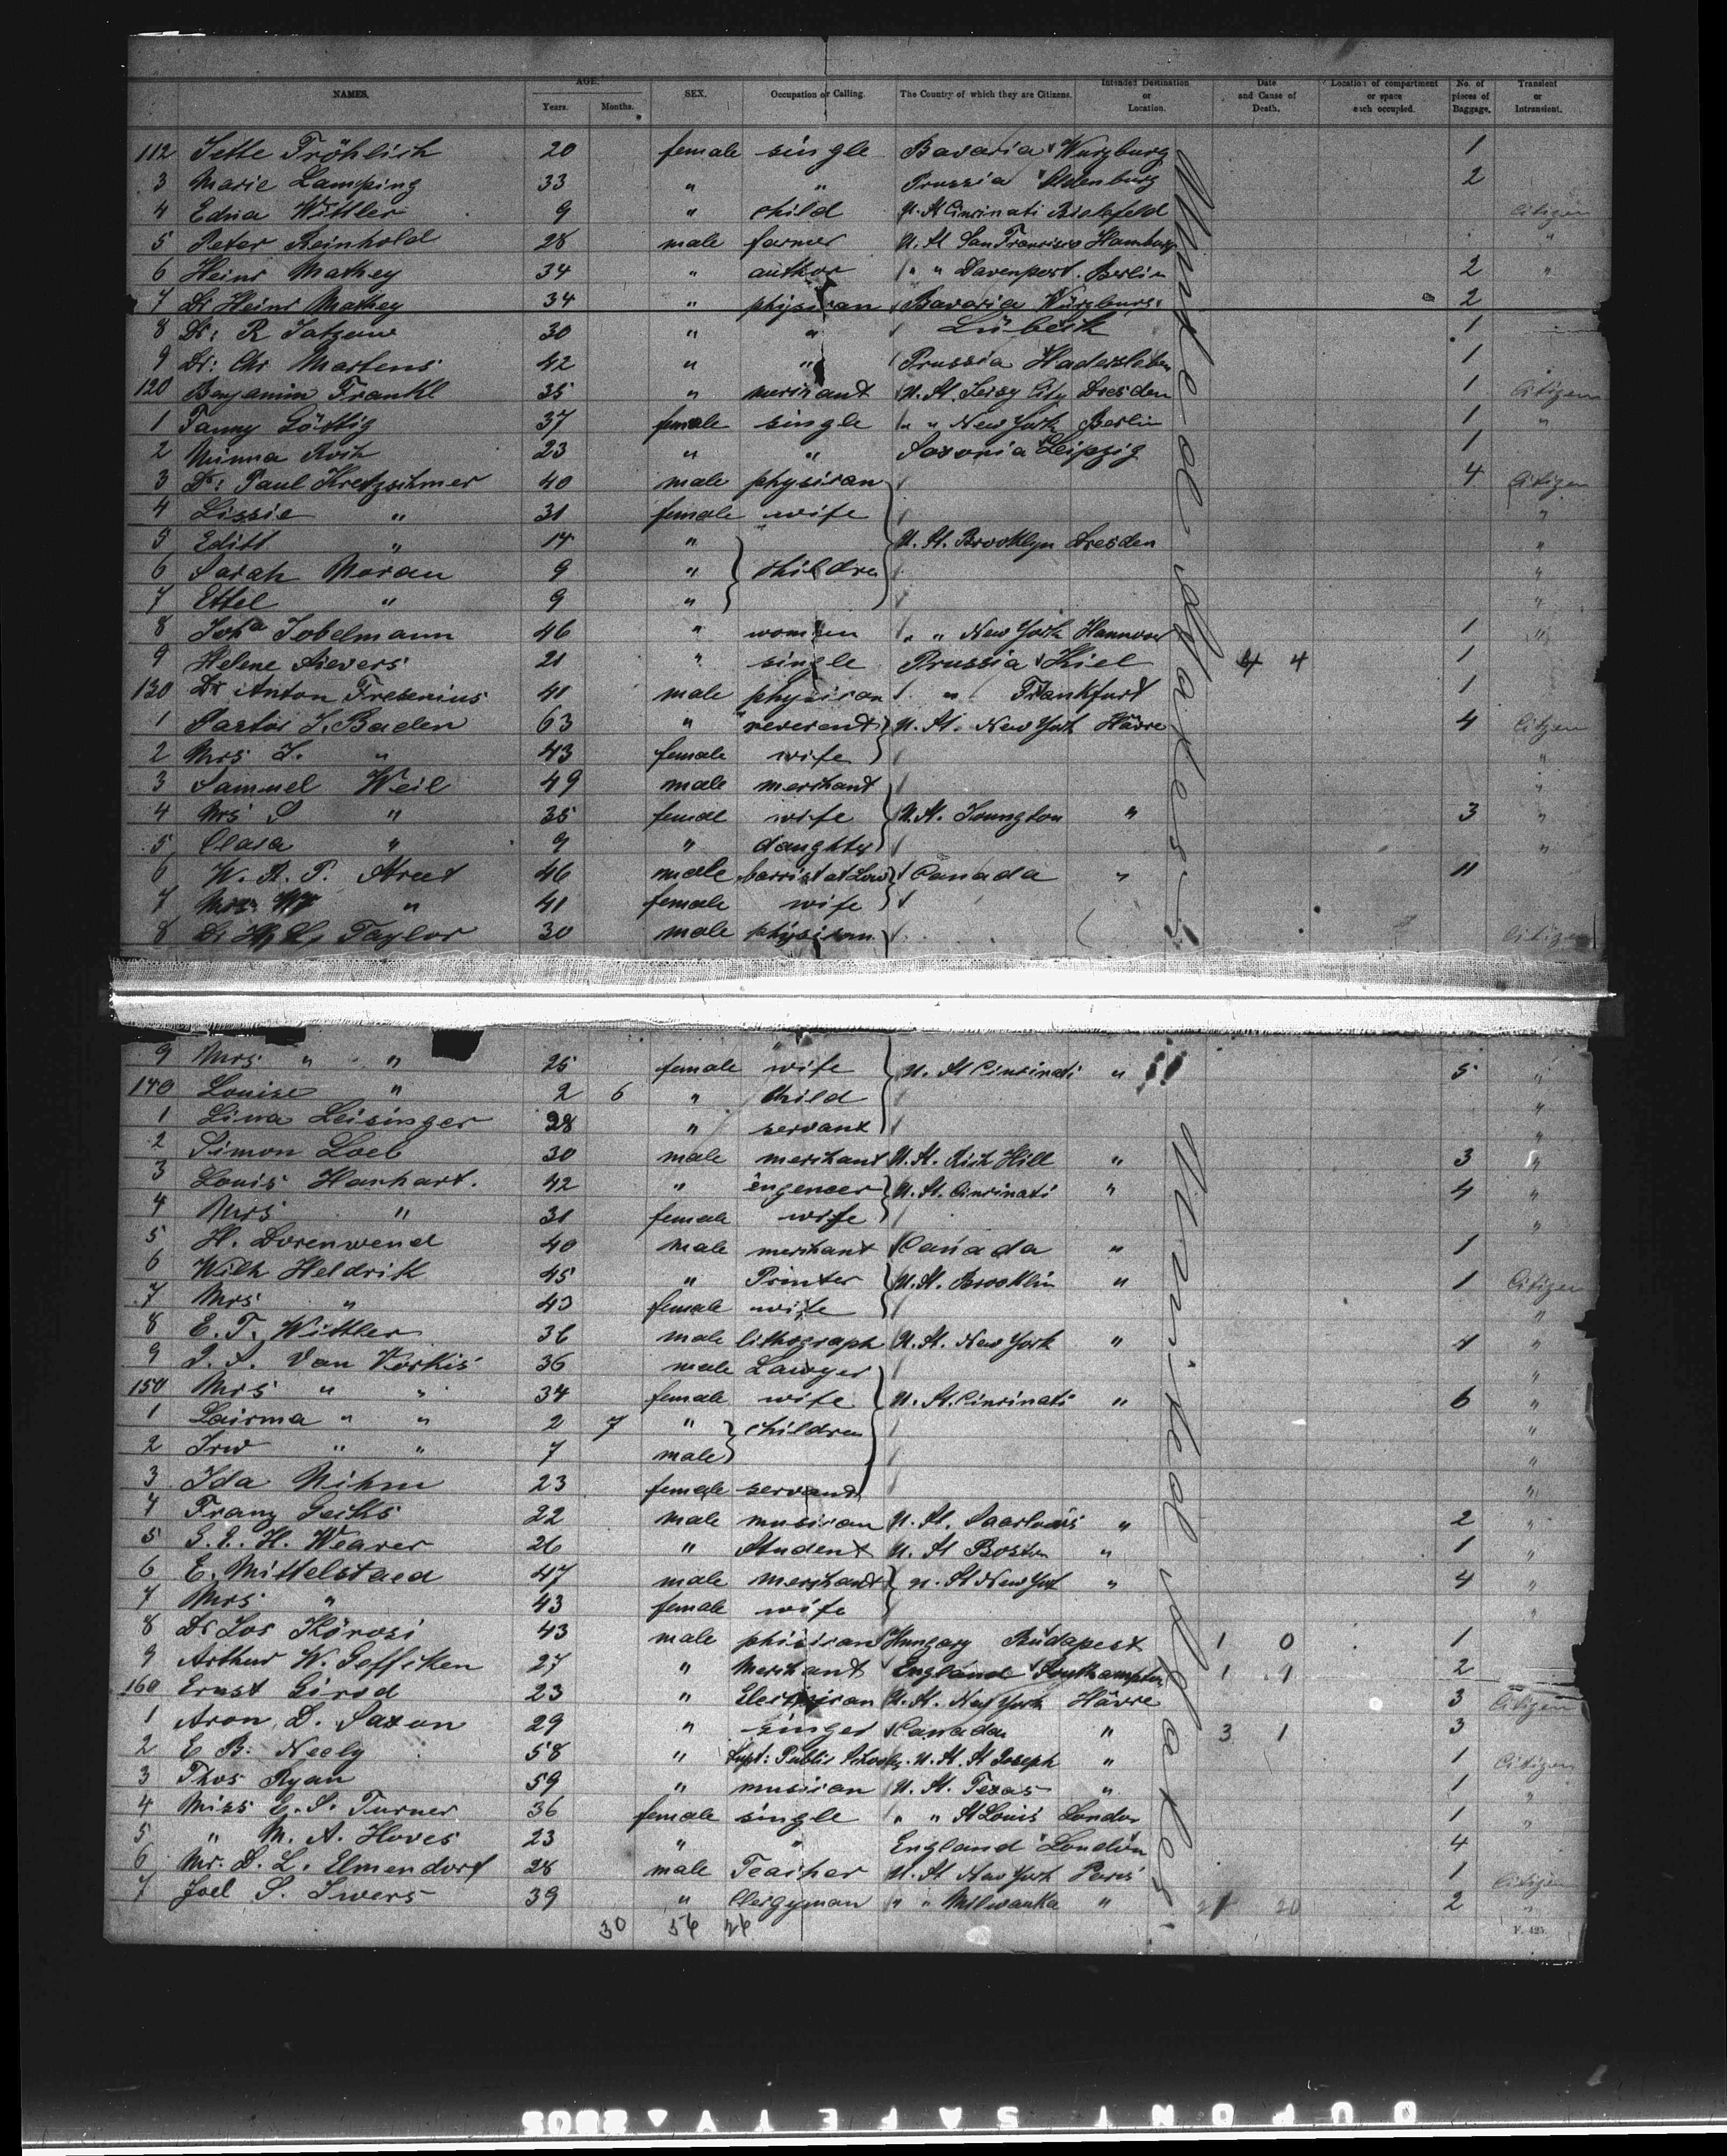 NAMES. AGE. Years. Months. SEX. Occupation or Calling. The Country of which they are Citizens. Intended Destination or Location. Date and Cause of Death. Location of compartment or space each occupied. No. of pieces of Baggage. Transient or Intransient.
112 Jette Fröhlich 20 female single Bavaria Wurzburg 1
3 Marie Lamping 33 " " Prussia Oldenburg 2
4 Edna Wittler 9 " child U. St Cincinati Bielefeld Citizen
5 Peter Reinhold 28 male farmer U. St San Francisco Hamburg "
6 Heinr Mathey 34 " author " " Davenport Berlin 2 "
7 Dr Heinr Mathey 34 " physican Bavaria Würzburg 2
8 Dr: R 30 " " Lübeck 1
9 Dr: Chr Martens 42 " " Prussia Hadersleben 1
120 Benjamin Frankl 35 " merchant U. St. Jersy City Dresden 1 Citizen
1 Fanny 37 female single " " New York Berlin 1 "
2 Minna Roth 23 " " Saxonia Leipzig 1
3 Dr: Paul Kretzschmer 40 male physican 4 Citizen
4 Lissie " 31 female wife "
5 Edith " 14 " U. St. Brooklyn Dresden "
6 Sarah Moran 9 " childre "
7 Ethel " 9 " "
8 Joha Tobelmann 46 " women " " New York Hannover 1 "
9 Helene Sievers 21 " single Prussia Kiel 4 4 1
130 Dr Anton Fresenius 41 male physican " Frankfurt 1
1 Pastor J. Baden 63 " reverant U. St. New York Hävre 4 Citizen
2 Mrs J. " 43 female wife "
3 Sammuel Weil 49 male merchant "
4 Mrs S " 35 female wife U. St. " 3 "
5 Clara " 9 " daughter "
6 W. R. P. Street 46 male barrist at Law Canada " 11
7 Mrs " 41 female wife
8 Dr H. L. Taylor 30 male physican Citizen
9 Mrs " " 25 female wife U. St Cincinati " 5 "
140 Louise " 2 6 " Child "
1 Lina Leisinger 28 " servant "
2 Simon Loeb 30 male merchant U. St. Rich Hill " 3 "
3 Louis Hanhart. 42 " engeneer U. St. Cincinati " 4 "
4 Mrs " 31 female wife "
5 H. Dorenwend 40 male merchant Canada " 1
6 Wilh Heldrik 45 " Printer U. St. Brooklin " 1 Citizen
7 Mrs " 43 female wife "
8 E. T. Wittler 36 male lithograph U. St. New York " 4 "
9 Van 36 male Lawyer "
150 Mrs " " 34 female wife U. St. Cincinati " 6 "
1 " " 2 7 " children "
2 Irw " " 7 male "
3 Ida Nihm 23 female servand "
4 Franz 22 male musican U. St. " 2 "
5 G. E. H. Weaver 26 " Student U. St Boston " 1 "
6 E. Mittelstaed 47 male merchant U. St New York " 4 "
7 Mrs " 43 female wife "
8 Dr Jos Körosi 43 male phisican Hungary Budapest 1 0 1
9 Arthur W. Geffcken 27 " Merchant England Southampton 1 1 2
160 Ernst Girod 23 " Electrican U. St. New York Hävre 3 Citizen
1 Aron D. Saxon 29 " singer Canada " 3 1 3
2 E B. Neely 58 " Supt: Public Schools U. St. St Joseph " 1 Citizen
3 Thos Ryan 59 " musican U. St. Texas " 1 "
4 Miss E. S. Turner 36 female single " " St Louis London 1 "
5 " M. A. Hoves 23 " " England London 4
6 Mr. D. L. Elmendorf 28 male Teacher U. St New York Paris 1 Citizen
7 Joel S. Ivers 39 " Clergyman " " Milwauka " 21 20 2 "
30 56 26
United States
United States
F. 425.
DUPONT SAFETY